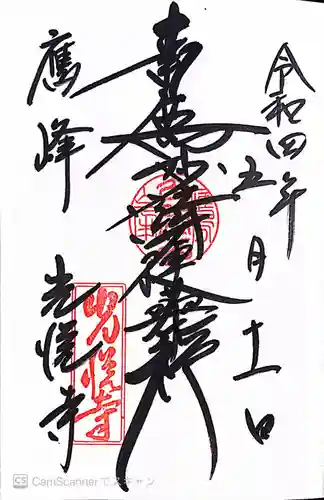 令和四年
五月十一日
南無妙法蓮華経
鷹峰
光悦寺
光悦寺
CS CamScannerでスキャン